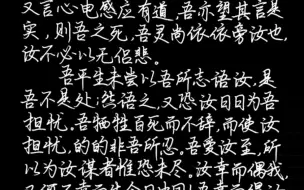 又言心电感应有道,吾亦望其言是
实,则吾之死,吾灵尚依依旁汝也,
汝不必以无侣悲。
吾平生未尝以吾所志语汝,是
吾不是处;然语之,又恐汝日日为吾
担忧。吾牺牲百死而不辞,而使汝
担忧,的的非吾所忍。吾爱汝至,所
以为汝谋者惟恐未尽。汝幸而偶我,